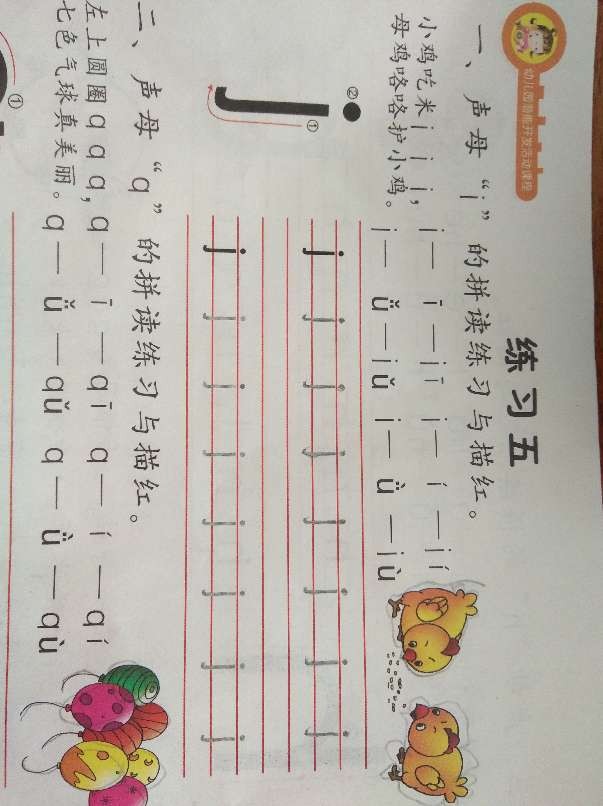 幼儿园潜能开发活动课程
练习五
一、声母“j”的拼读练习与描红。
小鸡吃米 j j j, j — ī — jī j — í — jí
母鸡咯咯护小鸡。 j — ǚ — jǔ j — ǜ — jù
① ② j
j j j j j j j j
j j j j j j j j
二、声母“q”的拼读练习与描红。
左上圆圈 q q q, q — ī — qī q — í — qí
七色气球真美丽。 q — ǚ — qǔ q — ǜ — qù
①